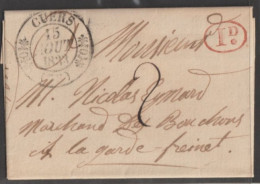 CUERS
15
1D.
Monsieur
2
M. Nicolas Aymard
Marchand de Bouchons
A la garde freinet.